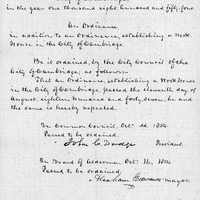 in the year one thousand eight hundred and fifty-four.
An Ordinance
in addition to an Ordinance, establishing a Work
House in the City of Cambridge.
Be it ordained by the City Council of the
City of Cambridge, as follows:
That an Ordinance, establishing a Work House
in the City of Cambridge, passed the eleventh day of
August, eighteen hundred and forty-seven, be and
the same is hereby repealed.
In Common Council, Oct.
Passed to be ordained,
John C. Dodge President
In Board of Aldermen, Oct.
Passed to be ordained,
Abraham Edwards Mayor.